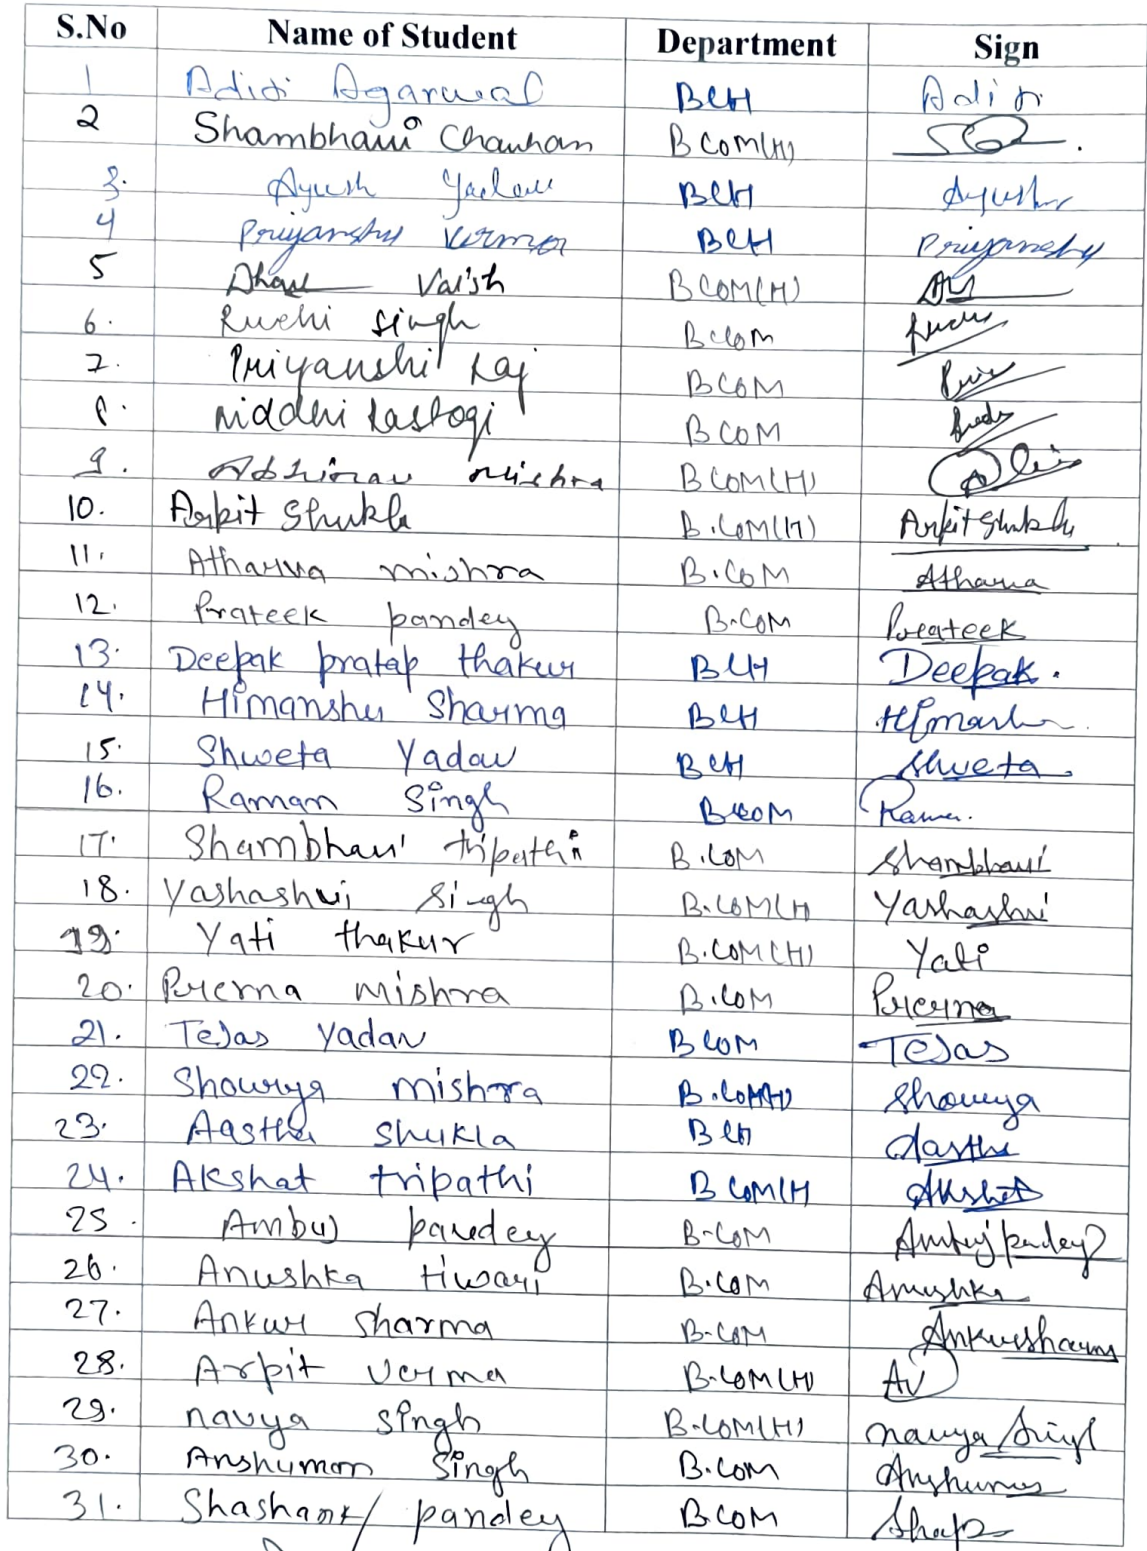 S.No Name of Student Department Sign
1 Aditi Agarwal BCH Aditi
2 Shambhavi Chauhan BCOM(H)
3. Ayush Yadav BCH Ayush
4 Priyanshu Verma BCH Priyanshu
5 Vaish BCOM(H)
6. Ruchi Singh BCOM Ruchi
7. Priyanshi Raj BCOM
8. Riddhi Rastogi BCOM
9. Abhinav Mishra BCOM(H)
10. Arpit Shukla B.COM(H) Arpit Shukla
11. Atharva mishra B.COM Atharva
12. Prateek pandey B.COM Prateek
13. Deepak pratap thakur BCH Deepak.
14. Himanshu Sharma BCH Himanshu
15. Shweta Yadav BCH Shweta
16. Raman Singh B.COM Raman.
17. Shambhavi tripathi B.COM Shambhavi
18. Yashashvi Singh B.COM(H Yashashvi
19. Yati thakur B.COM(H) Yati
20. Prerna mishra B.COM Prerna
21. TeJas Yadav BCOM TeJas
22. Shourya mishra B.COM(H) Shourya
23. Aastha Shukla BCH Aastha
24. Akshat tripathi BCOM(H Akshat
25. Ambuj pandey B.COM Ambuj pandey
26. Anushka tiwari B.COM Anushka
27. Ankur Sharma B.COM Ankur sharma
28. Arpit Verma B.COM(H) AV
29. navya Singh B.COM(H) navya Singh
30. Anshuman Singh B.COM Anshuman
31. Shashank pandey B.COM